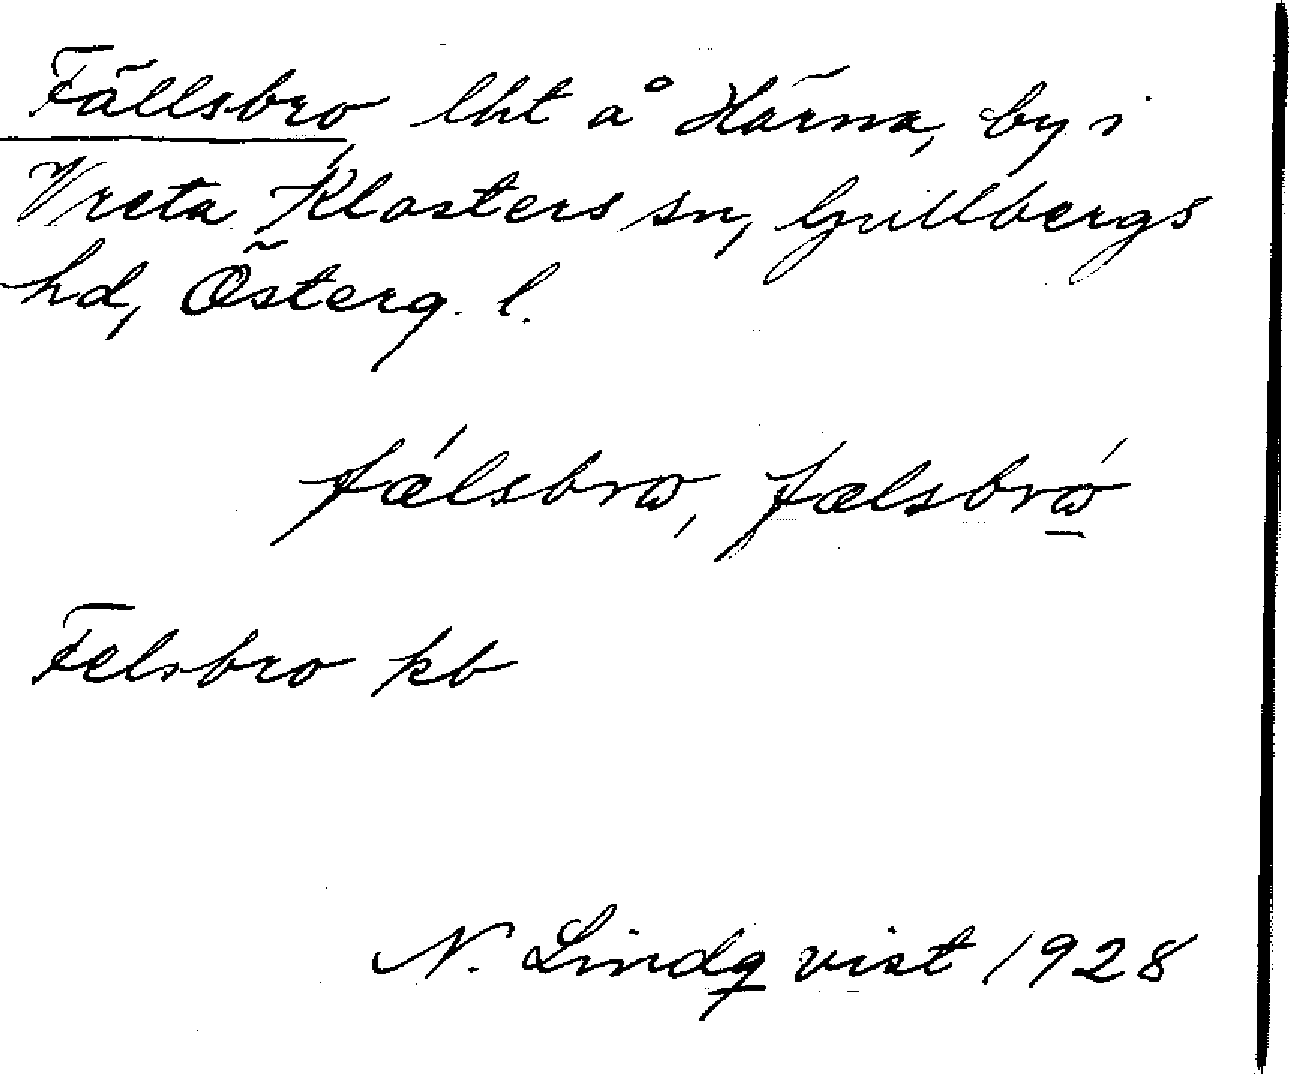 Fällsbro lht å Härna, by i
Vreta Klosters sn, Gullbergs
hd, Österg. l.
fǽlsbrω, fælsbrώ̲
Felsbro kb
N. Lindqvist 1928